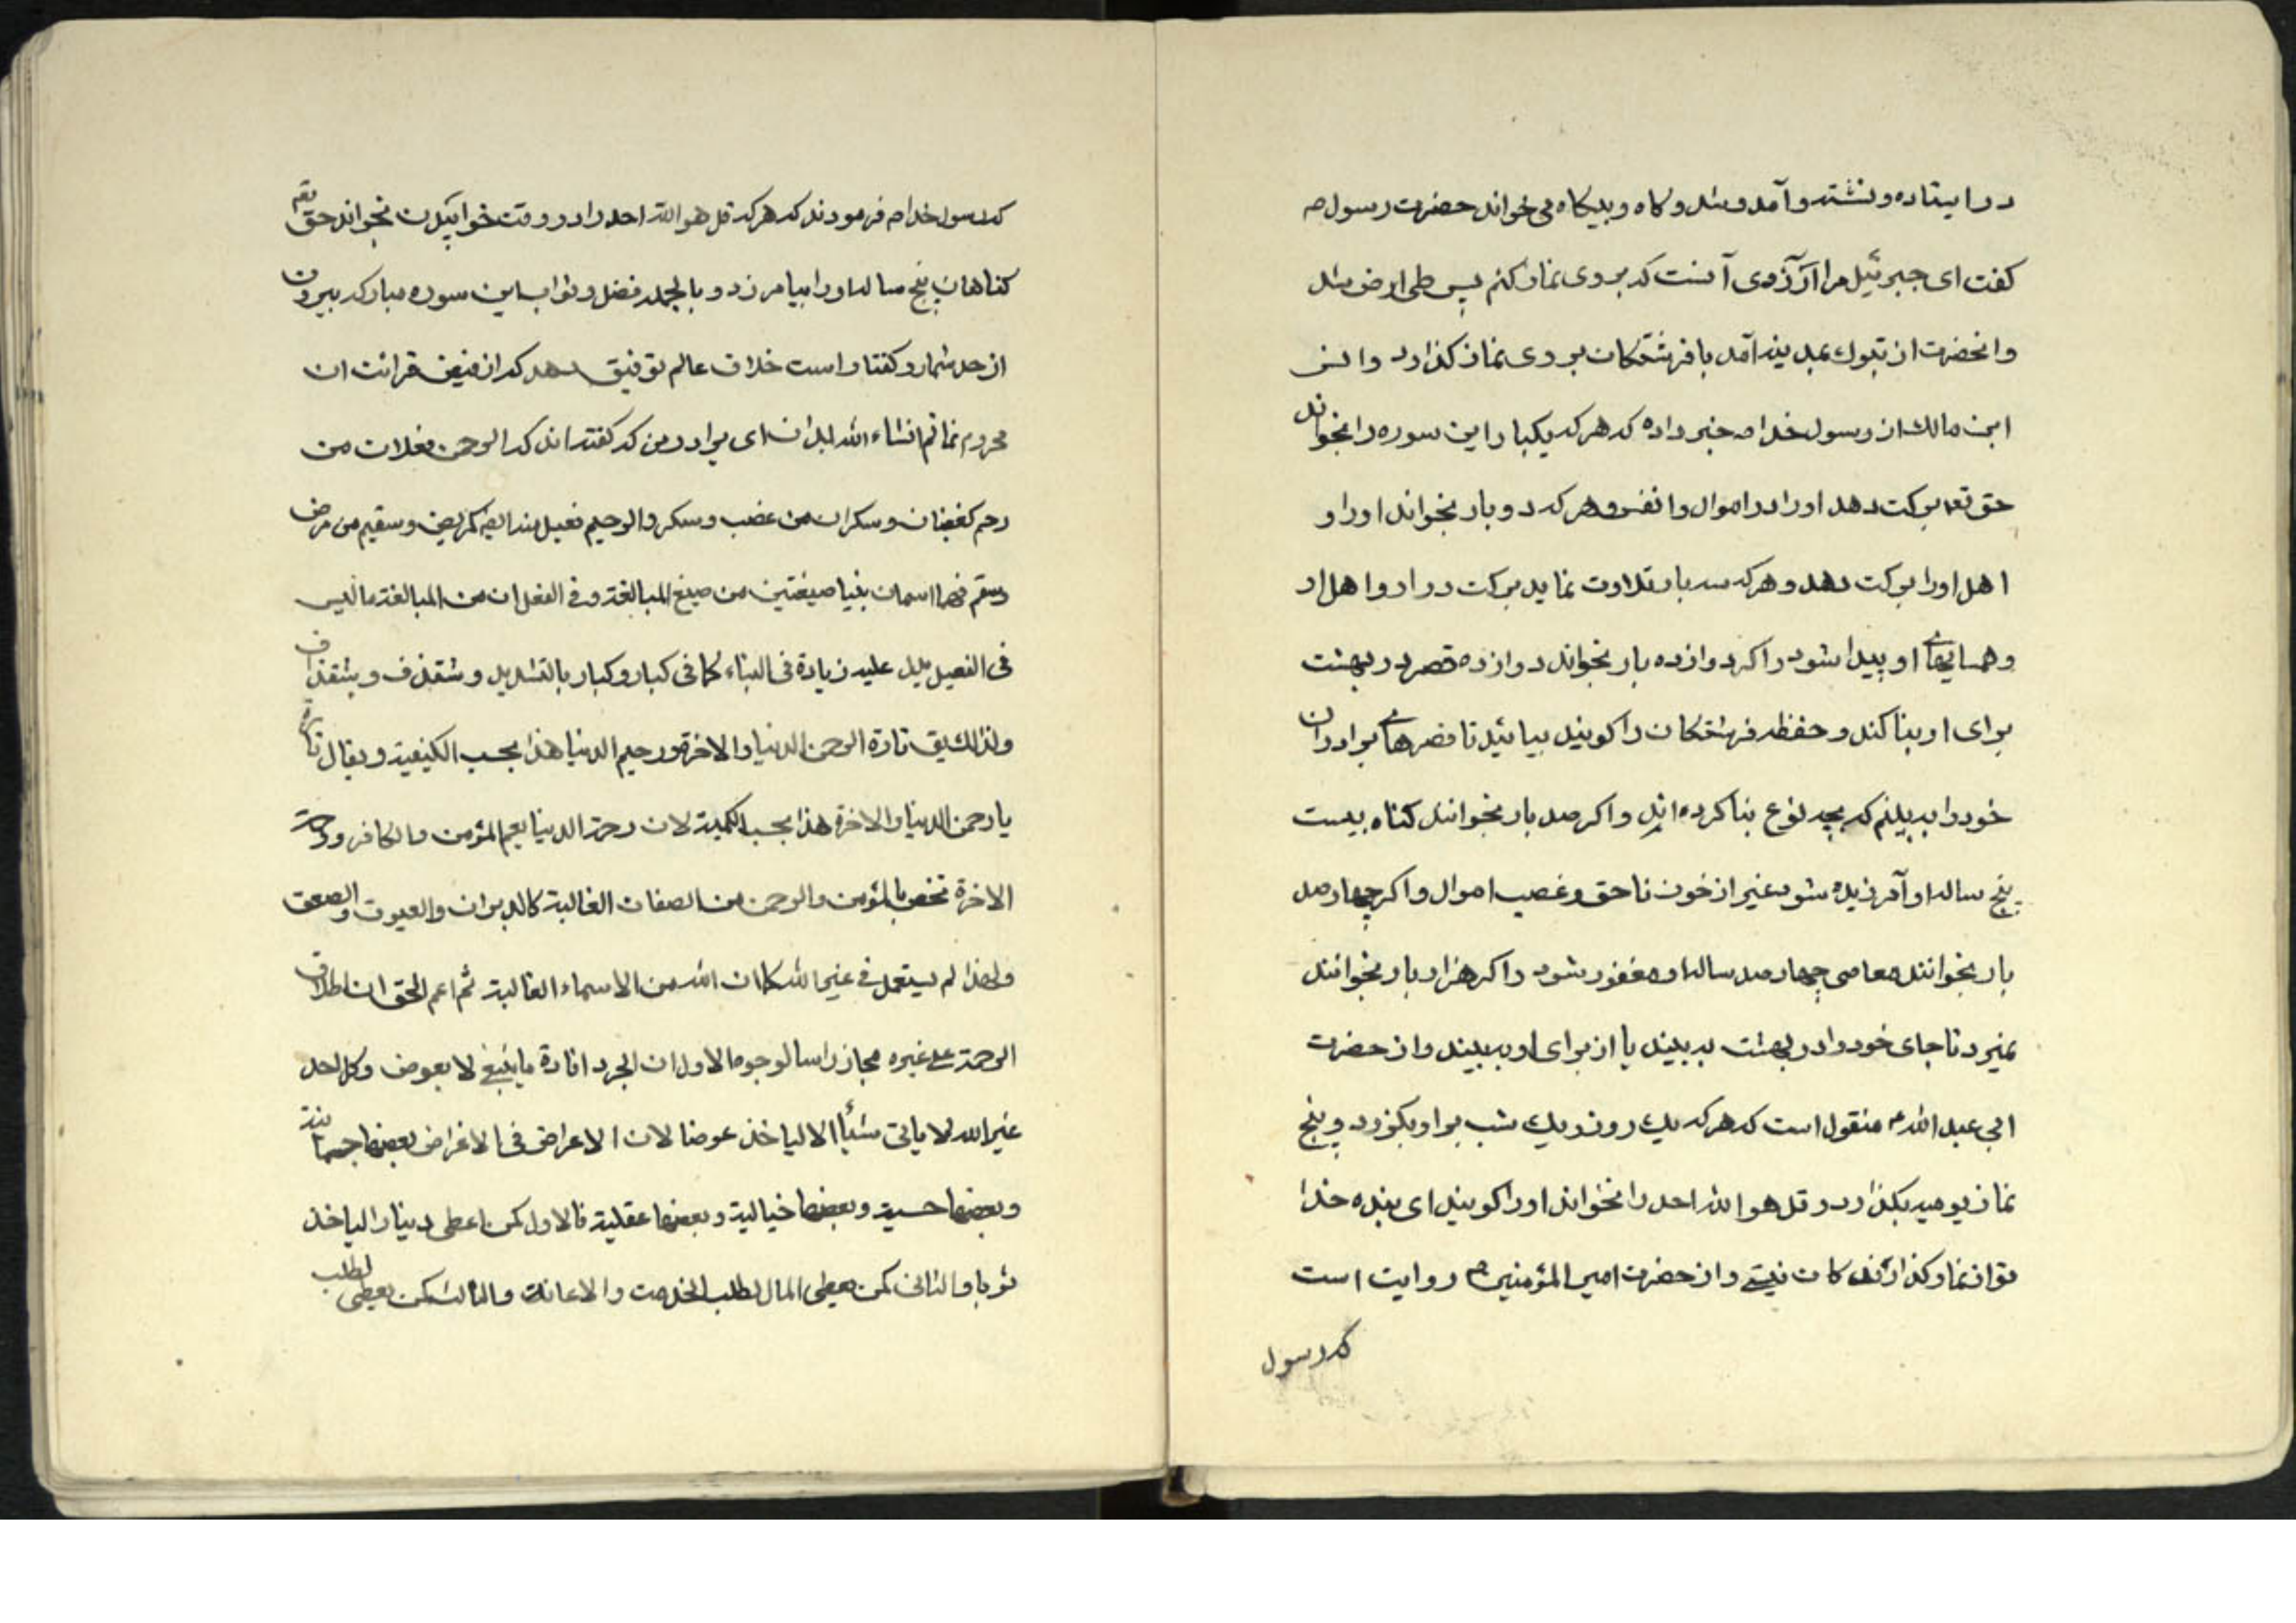 در ایستاده و نشسته و آمد و شد و کاه و بیکاه می خواند حضرت رسول ص
کفت ای جبرئیل مرا آرزوی آنست که بر وی نماز کنم پس طی ارض شد
و انحضرت از تبوك بمدینه آمد با فرشتکان بر وی نماز کذارد و انس
ابن مالك از رسول خدا ص خبر داده که هر که یکبار این سوره را بخواند
حق تعم برکت دهد او را در اموال و انفس و هر که دو بار بخواند او را و
اهل او را برکت دهد و هر که سه بار تلاوت نماید برکت در او و اهل او
و همسایهای او پیدا شود و اکر دوازده بار بخواند دوازده قصر در بهشت
برای او بنا کند و حفظه فرشتکان را کویند بیائید تا قصرهای برادران
خود را به بینیم که بچه نوع بنا کرده اند و اکر صد بار بخوانند کناه بیست
پنج ساله او آمرزیده شود غیر از خون ناحق و غصب اموال و اکر چهار صد
بار بخوانند معاصی چهار صد ساله او مغفور شود و اکر هزار بار بخوانند
نمیرد تا جای خود را در بهشت به بیند یا از برای او به بینند و از حضرت
ابی عبد الله ع منقول است که هر که یك روز و یك شب بر او بکذرد و پنج
نماز یومیه بکذارد و قل هو الله احد را نخواند او را کویند ای بنده خدا
تو از نماز کذارندکان نیستی و از حضرت امیر المؤمنین ع روایت است
که رسول
که رسول خدا ص فرمودند که هر که قل هو الله احد را در وقت خوابیدن بخواند حق تعم
کناهان پنج ساله او را بیامرزد و بالجمله فضل و ثواب این سوره مبارکه بیرون
از حد شمار و کفتار است خلاق عالم توفیق دهد که از فیض قرائت ان
محروم نمانم انشاء الله بدان ای برادر من که کفته اند که الرحمن فعلان من
رحم کغضبان و سکران من غضب و سکر و الرحیم فعیل منه ایضا کمریض و سقیم من مرض
و سقم فهما اسمان بنیا صیغتین من صیغ المبالغة و فی الفعلان من المبالغة ما لیس
فی الفعیل یدل علیه زیادة فی البناء کما فی کبار و کبار بالتشدید و شقذف و شقنذاف
ولذلك یق تارة الرحمن الدنیا و الاخرة و رحیم الدنیا هذا بحسب الکیفیة و یقال تارة
یا رحمن الدنیا و الاخرة هذا بحسب الکمیة لان رحمة الدنیا یعم المؤمن و الکافر و رحمة
الاخرة تخص بالمؤمن و الرحمن من الصفات الغالبة کالدبران و العیوق و الصعق
ولهذا لم یستعمل فی غیر الله کما ان الله من الاسماء الغالبة ثم اعم الحق ان اطلاق
الرحمة علی غیره مجاز راسا لوجوه الاول ان الجود افادة ما ینبغی لا بعوض و کل احد
غیر الله لا یاتی شیأ الا لیاخذ عوضا لان الاعراض فی الاغراض بعضها جسمانیة
و بعضها حسیة و بعضها خیالیة و بعضها عقلیة فالاول کمن اعطی دینارا لیاخذ
ثوبا و الثانی کمن یعطی المال لطلب الخدمت و الاعانة و الثالث کمن یعطی لطلب